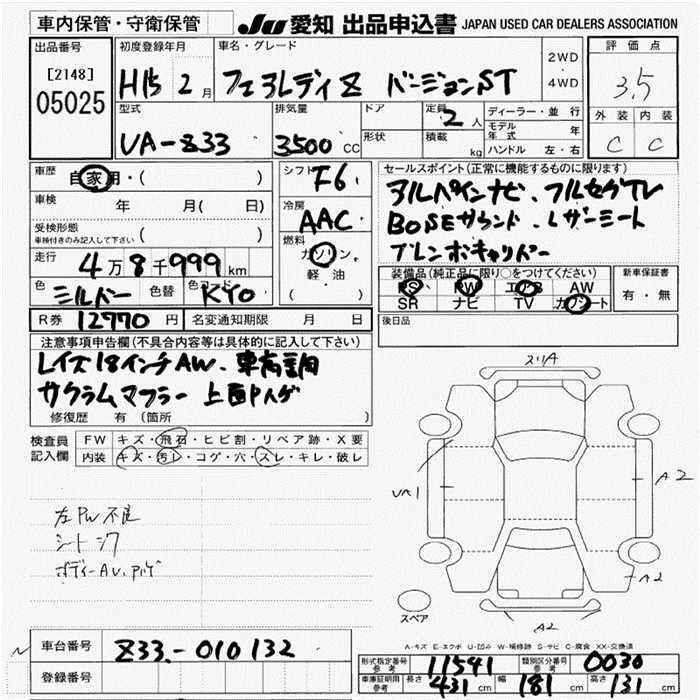 車内保管・守衛保管
JU 愛知 出品申込書 JAPAN USED CAR DEALERS ASSOCIATION
出品番号
[2148]
05025
初度登録年月
H15 2月
車名・グレード
フェアレディZ バージョンST
2WD
・
4WD
評価点
3.5
外装 内装
C C
型式
UA-Z33
排気量
3500 CC
ドア
形状
定員
2人
積載 kg
ディーラー・並行
モデル年式 年
ハンドル 左・右
車歴
自家用・( )
車検
年 月( 日)
受検形態
車検付きのみ記入して下さい ( )
走行
4万8千999km
色
シルバー
色替
色コード
KY0
シフト
F6
冷房
AAC
燃料
ガソリン。
軽・油
( )
セールスポイント(正常に機能するものに限ります)
アルパインナビ、フルセグTV
BOSEサウンド、レザーシート
ブレンボキャリパー
装備品(純正品に限り○をつけてください)
PS PW エアB AW
SR ナビ TV カワシート
新車保証書
有・無
R券 12770円 名変通知期限 月 日
後日品
注意事項申告欄(不具合内容等は具体的に記入して下さい)
レイズ18インチAW、車高調
サクラムマフラー 上面Pハゲ
修復歴 有(箇所 )
検査員
記入欄
FW キズ・飛石・ヒビ割・リペア跡・X要
内装 キズ・汚レ・コゲ・穴・スレ・キレ・破レ
左PW不良
シートシワ
ボディーAU、Pハゲ
スリA
UA1
A2
A2
スペア
A2
A-キズ E-エクボ U-凹み W-補修跡 S-サビ C-腐食 XX-交換済
車台番号 Z33-010132
登録番号
形式指定番号 参考 11541 類別区分番号 参考 0030
車庫証明用 参考 長さ 431cm 幅 181cm 高さ 131cm